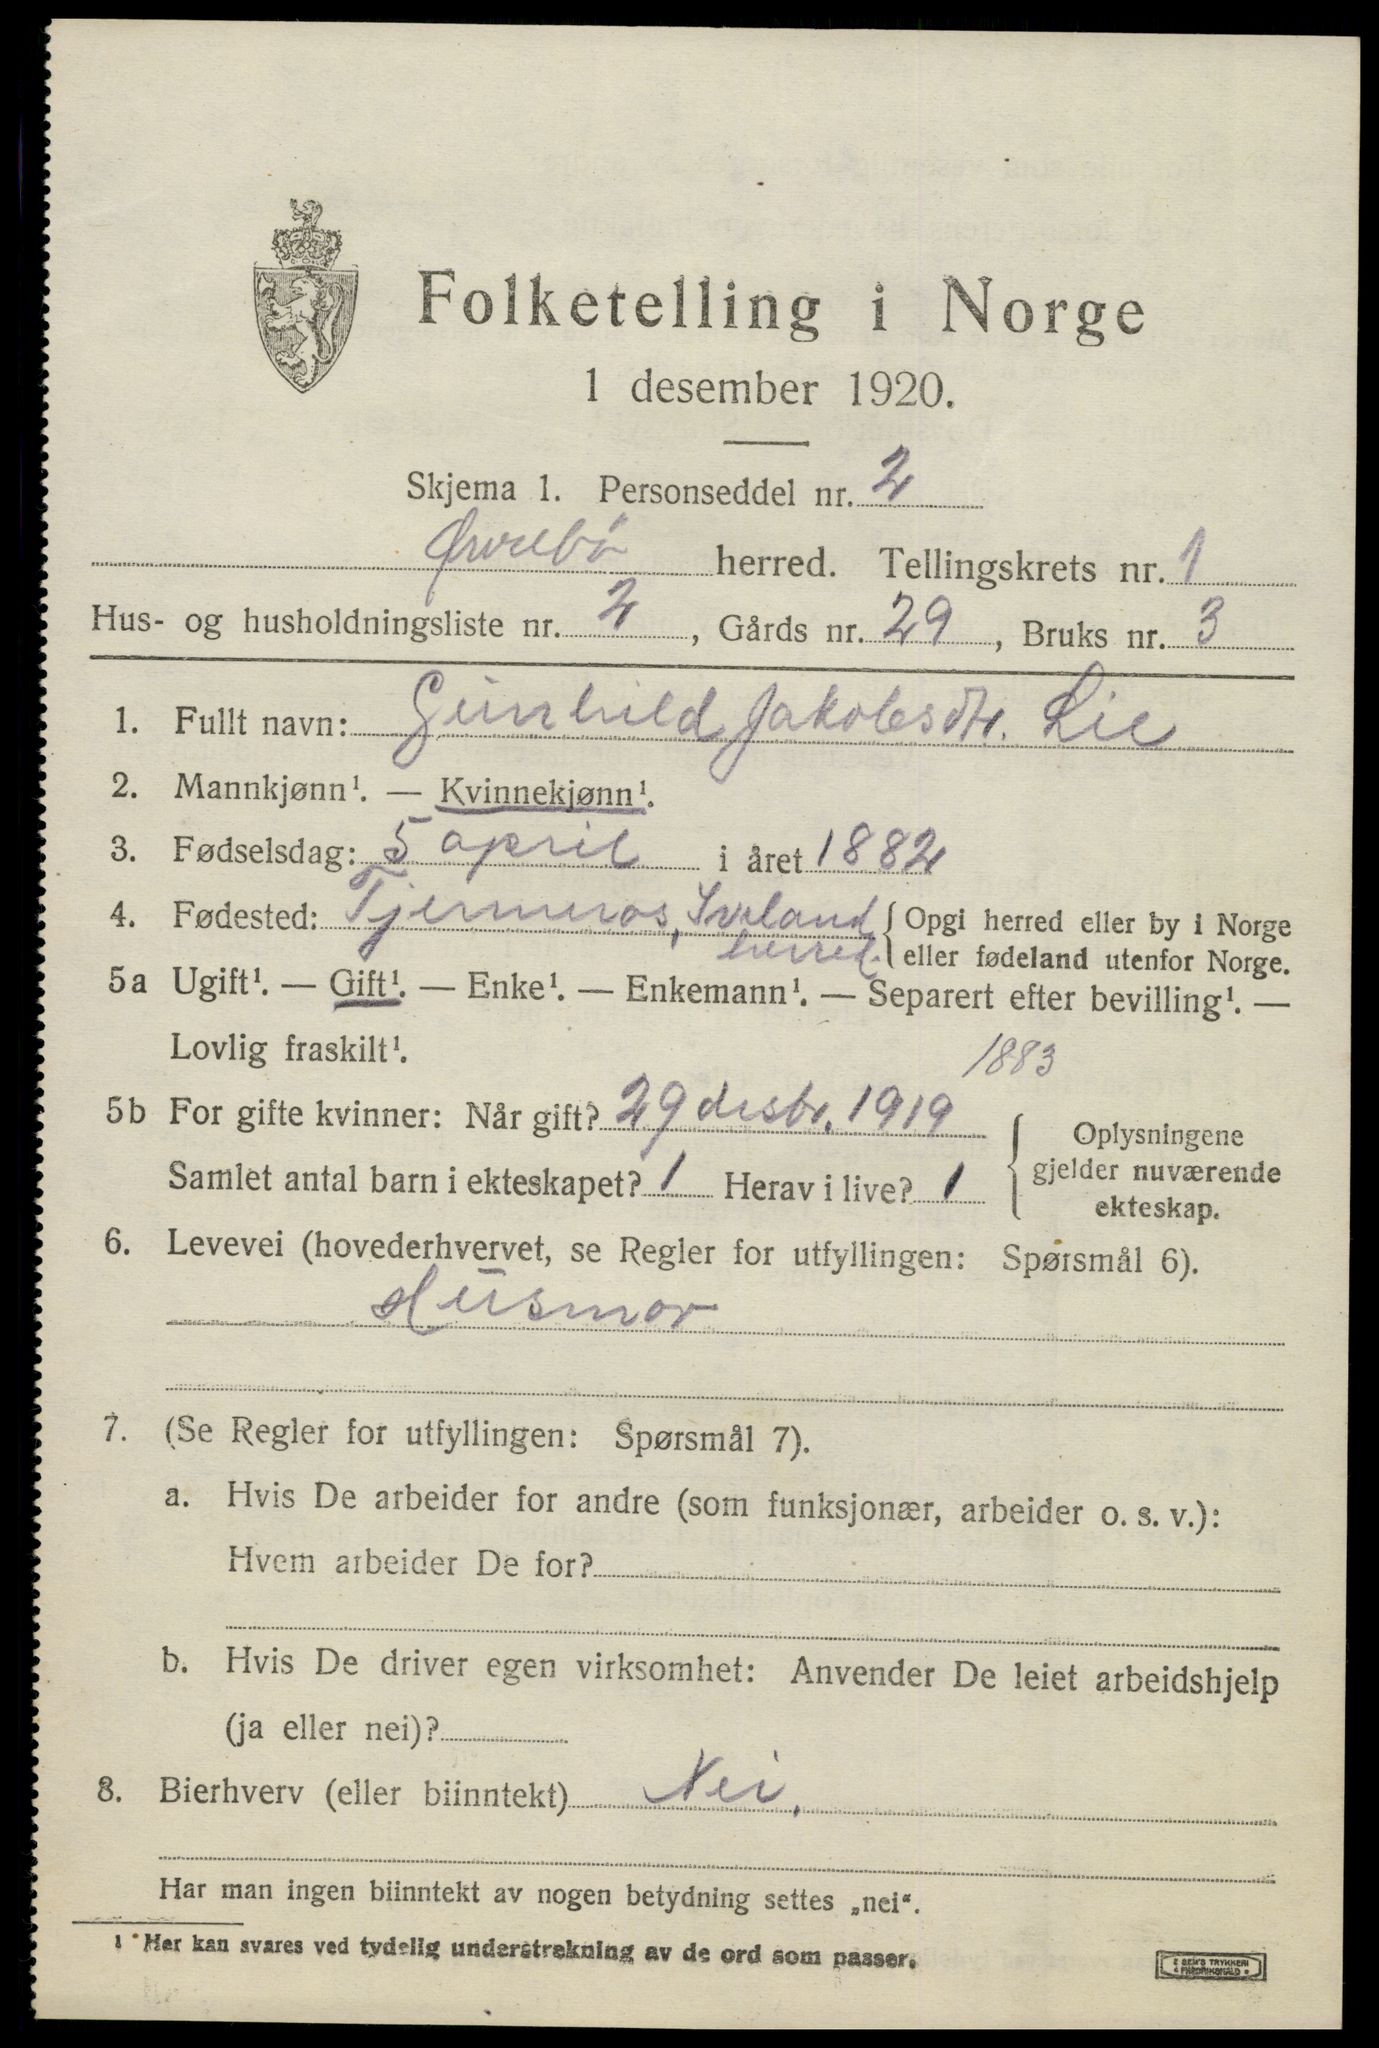 Folketelling i Norge
1 desember 1920.
Skjema 1. Personseddel nr. 2
Øvrebø herred. Tellingskrets nr. 1
Hus- og husholdningsliste nr. 2, Gårds nr. 29, Bruks nr. 3
1. Fullt navn: Gunhild Jakobsdtr. Lie
2. Mannkjønn¹. — Kvinnekjønn¹.
3. Fødselsdag: 5 april i året 1882
4. Fødested: Tjermeros, Iveland { Opgi herred eller by i Norge
herred. eller fødeland utenfor Norge.
5a Ugift¹. — Gift¹. — Enke¹. — Enkemann¹. — Separert efter bevilling¹. —
Lovlig fraskilt¹.
1883
5b For gifte kvinner: Når gift? 29 desbr. 1919
Samlet antal barn i ekteskapet? 1 Herav i live? 1
{ Oplysningene
gjelder nuværende
ekteskap.
6. Levevei (hovederhvervet, se Regler for utfyllingen: Spørsmål 6).
Husmor
7. (Se Regler for utfyllingen: Spørsmål 7).
a. Hvis De arbeider for andre (som funksjonær, arbeider o. s. v.):
Hvem arbeider De for?
b. Hvis De driver egen virksomhet: Anvender De leiet arbeidshjelp
(ja eller nei)?
8. Bierhverv (eller biinntekt) Nei.
Har man ingen biinntekt av nogen betydning settes „nei“.
1 Her kan svares ved tydelig understrekning av de ord som passer.
E SEM'S TRYKKERI
FREDRIKSHALD